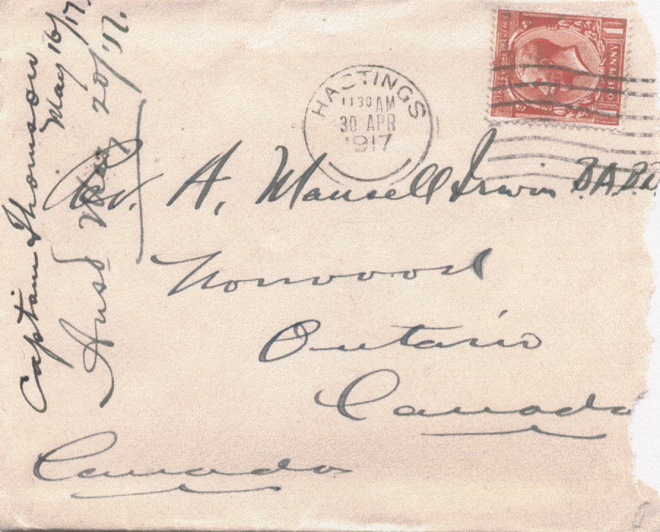 HASTINGS
11 30 AM
30 APR
1917
ONE PENNY
Rev. A. Mansell Irwin B.A. B.D.
Norwood
Ontario
Canada
Canada
Captain Thomson
May 16/17.
Ansd May 20/17.